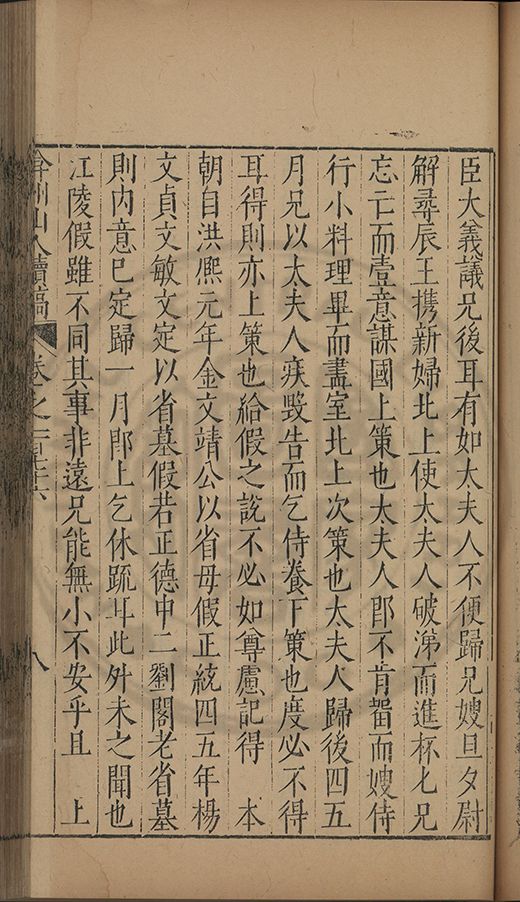 臣大義議兄後耳有如太夫人不便歸兄嫂旦夕尉
解尋辰王携新婦北上使太夫人破涕而進杯匕兄
忘亡而壹意謀國上策也太夫人郎不肯畱而嫂侍
行小料理畢而盡室北上次策也太夫人歸後四五
月兄以太夫人疾毀告而乞侍養下策也度必不得
耳得則亦上策也給假之說不必如尊慮記得　本
朝自洪熈元年金文靖公以省母假正統四五年楊
文貞文敏文定以省墓假若正德中二劉閣老省墓
則內意已定歸一月郎上乞休疏耳此外未之聞也
江陵假雖不同其事非遠兄能無小不安乎且　上
弇州山人續稿 卷之一百 八